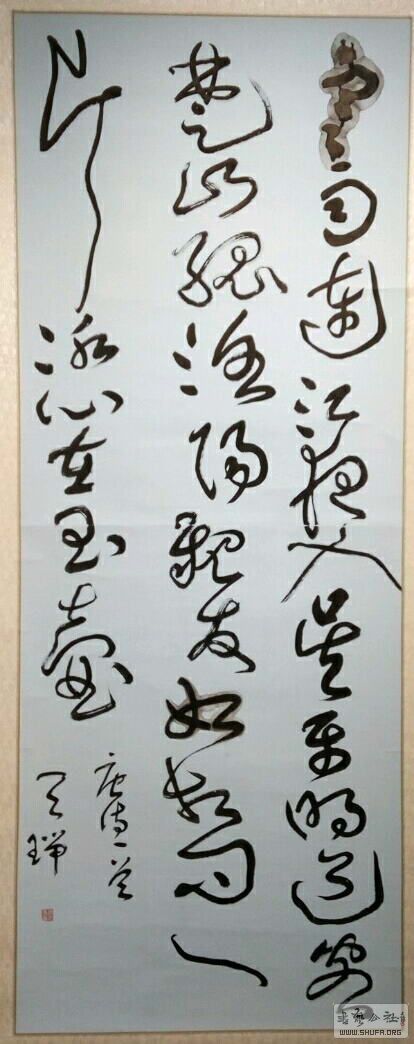 寒雨連江夜入吳平明送客
楚山孤洛陽親友如相問一
片冰心在玉壺
唐詩一首
天瑞
WWW.SHUFA.ORG